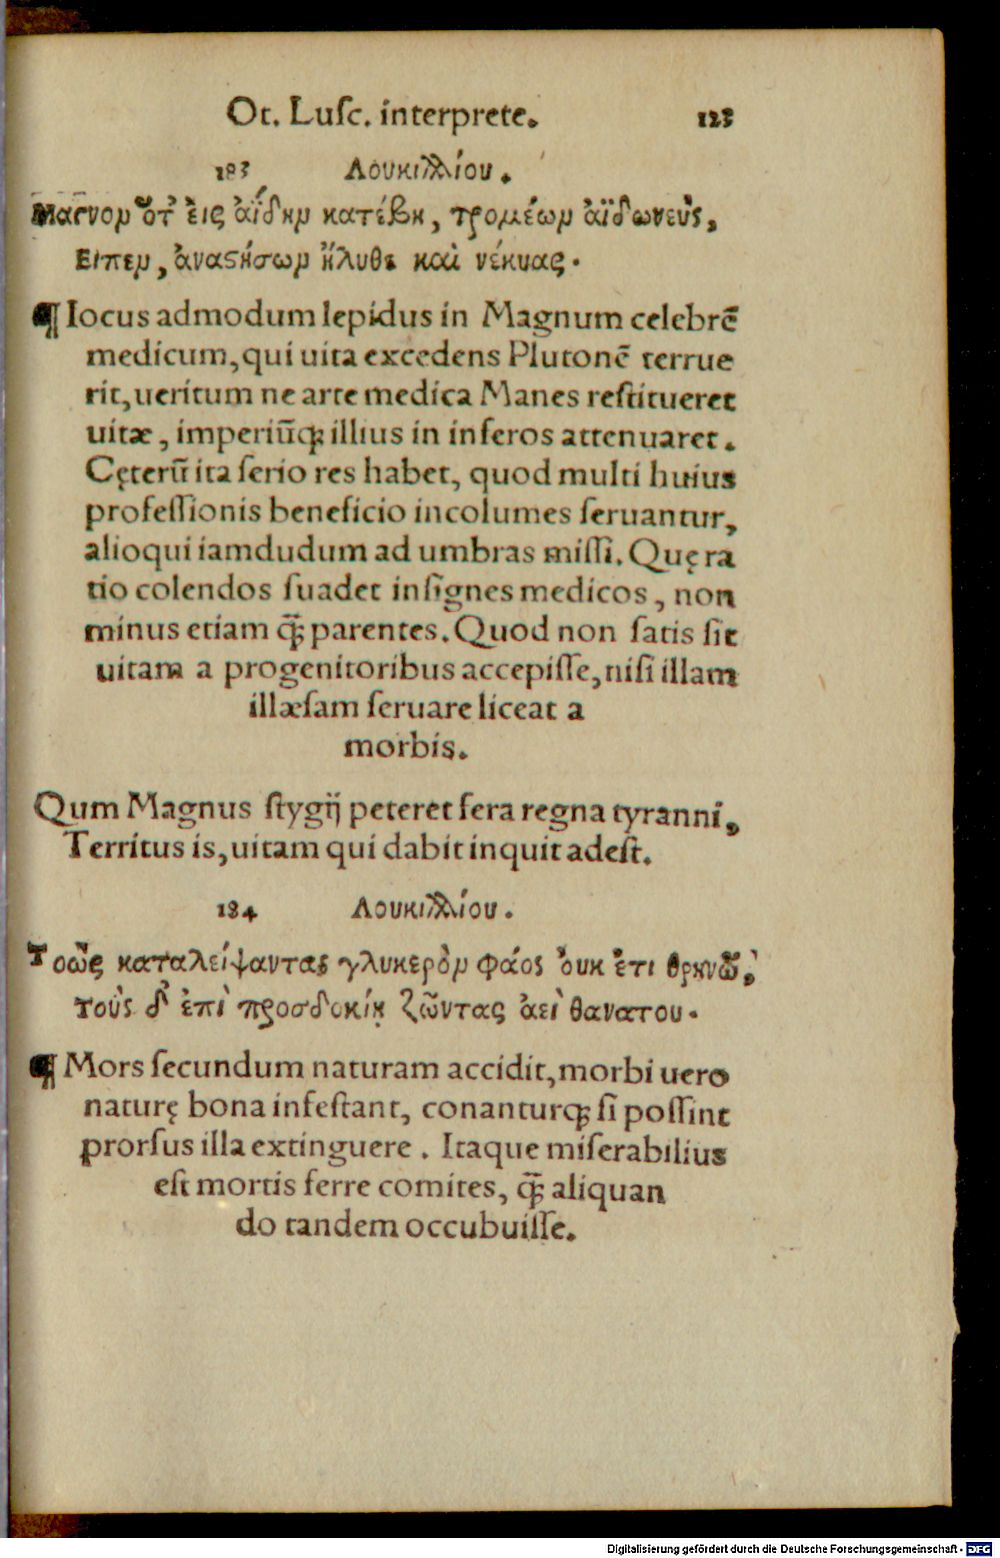 Ot. Luſc. interprete. 123
183 Λουκιλλίου.
Μαγνον ὅτ' εἰς ἀΐδην κατέβη, τρομέων ἀϊδωνεὺς,
Εἶπεν, ἀναστήσων ἤλυθε καὶ νέκυας.
¶ Iocus admodum lepidus in Magnum celebrē
medicum, qui uita excedens Plutonē terrue
rit, ueritum ne arte medica Manes reſtitueret
uitæ, imperiūq; illius in inferos attenuaret.
Cęterū ita ſerio res habet, quod multi huius
profeſſionis beneficio incolumes ſeruantur,
alioqui iamdudum ad umbras miſſi. Quę ra
tio colendos ſuadet inſignes medicos, non
minus etiam q̃; parentes. Quod non ſatis ſit
uitam a progenitoribus accepiſſe, niſi illam
illæſam ſeruare liceat a
morbis.
Qum Magnus ſtygij peteret fera regna tyranni,
Territus is, uitam qui dabit inquit adeſt.
184 Λουκιλλίου.
Τοὺς καταλείψαντας γλυκερὸν φάος οὐκ ἔτι θρηνῶ,
τοὺς δ' ἐπὶ προσδοκίῃ ζῶντας ἀεὶ θανατου.
¶ Mors ſecundum naturam accidit, morbi uero
naturę bona infeſtant, conanturq; ſi poſſint
prorſus illa extinguere. Itaque miſerabilius
eſt mortis ferre comites, q̃; aliquan
do tandem occubuiſſe.
Digitalisierung gefördert durch die Deutsche Forschungsgemeinschaft - DFG